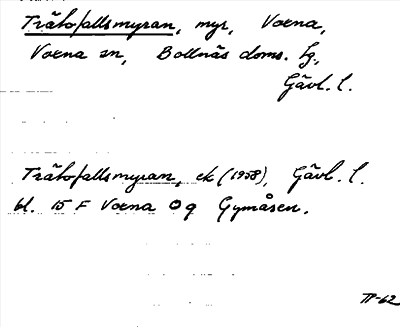 Trätofallsmyran, myr, Voxna,
Voxna sn, Bollnäs doms. hg.,
Gävl. l.
Trätofallsmyran, ek (1958), Gävl. l.
bl. 15 F Voxna Ö q Gymåsen.
TP-62